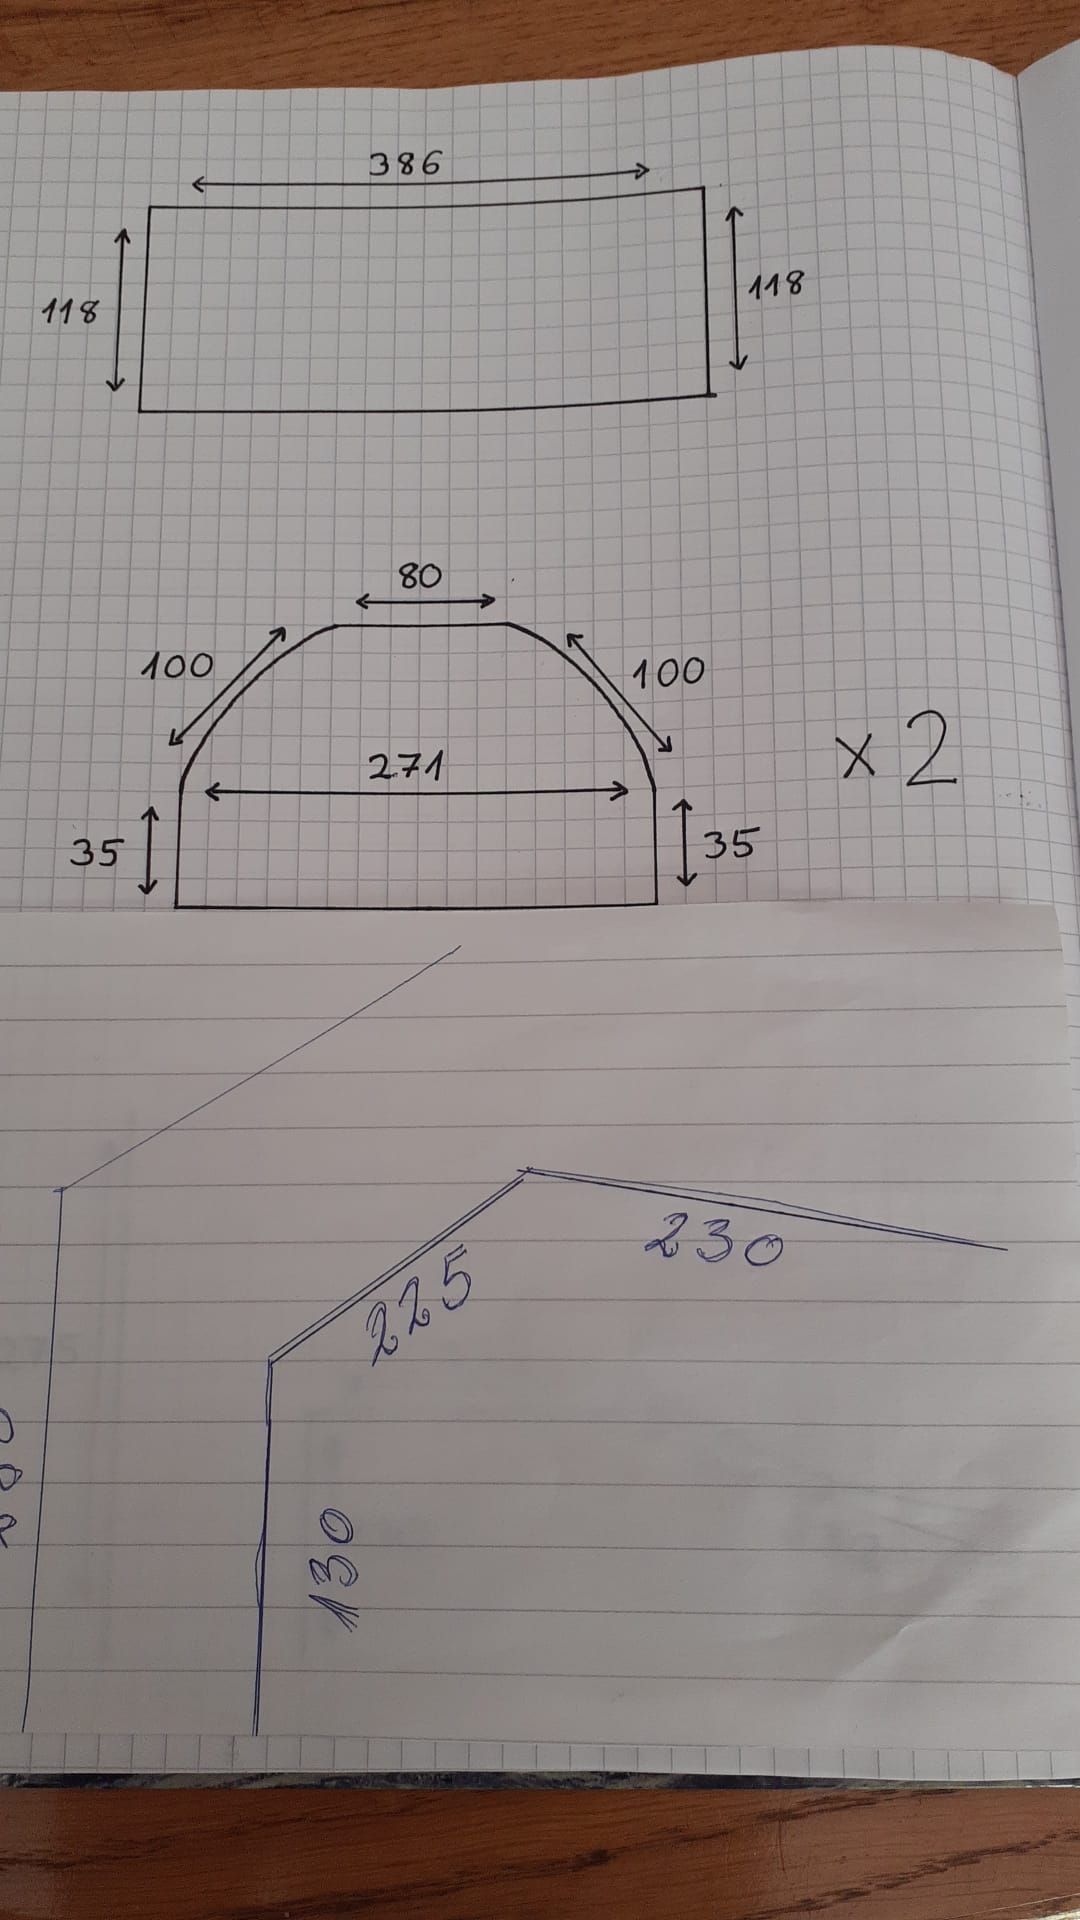 386
118
118
80
100
100
271
x 2
35
35
230
225
130